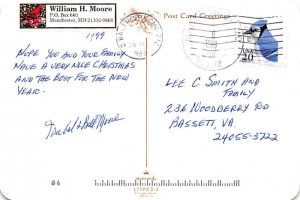 William H. Moore
P.O. Box 660
Manchester, MD 21102-0660
Post Card Greetings
1999
HOPE YOU AND YOUR FAMILY
HAVE A VERY NICE CHRISTMAS
AND THE BEST FOR THE NEW
YEAR.
Isabel & Bill Moore
USA
20
LEE C SMITH AND
FAMILY
236 WOODBERRY RD
BASSETT, VA.
24055-3722